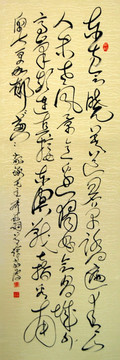 东方欲晓莫道君行早踏遍青山
人未老风景这边独好会昌城外
高峰颠连直接东溟战士指看南
粤更加郁郁葱葱